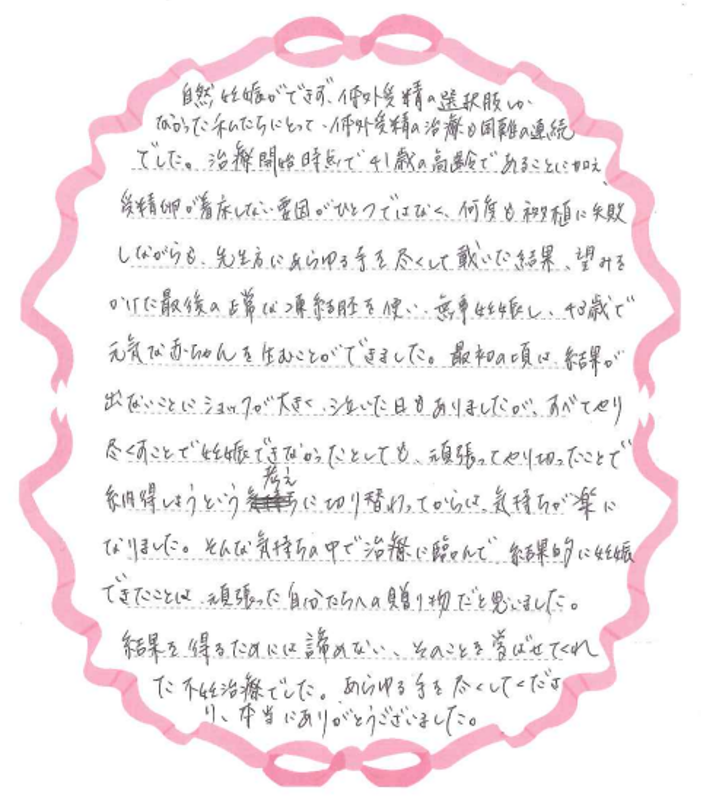 自然妊娠ができず、体外受精の選択肢しか
なかった私たちにとって、体外受精の治療も困難の連続
でした。治療開始時点で41歳の高齢であることに加え、
受精卵が着床しない要因がひとつではなく、何度も移植に失敗
しながらも、先生方にあらゆる手を尽くして戴いた結果、望みを
かけた最後の正常な凍結胚を使い、無事妊娠し、43歳で
元気な赤ちゃんを生むことができました。最初の頃は、結果が
出ないことにショックが大きく、泣いた日もありましたが、すべてやり
尽くすことで妊娠できなかったとしても、頑張ってやり切ったことで
納得しようという考えに切り替わってからは、気持ちが楽に
なりました。そんな気持ちの中で治療に臨んで、結果的に妊娠
できたことは、頑張った自分たちへの贈り物だと思いました。
結果を得るためには諦めない、そのことを学ばせてくれ
た不妊治療でした。あらゆる手を尽くしてくださ
り、本当にありがとうございました。